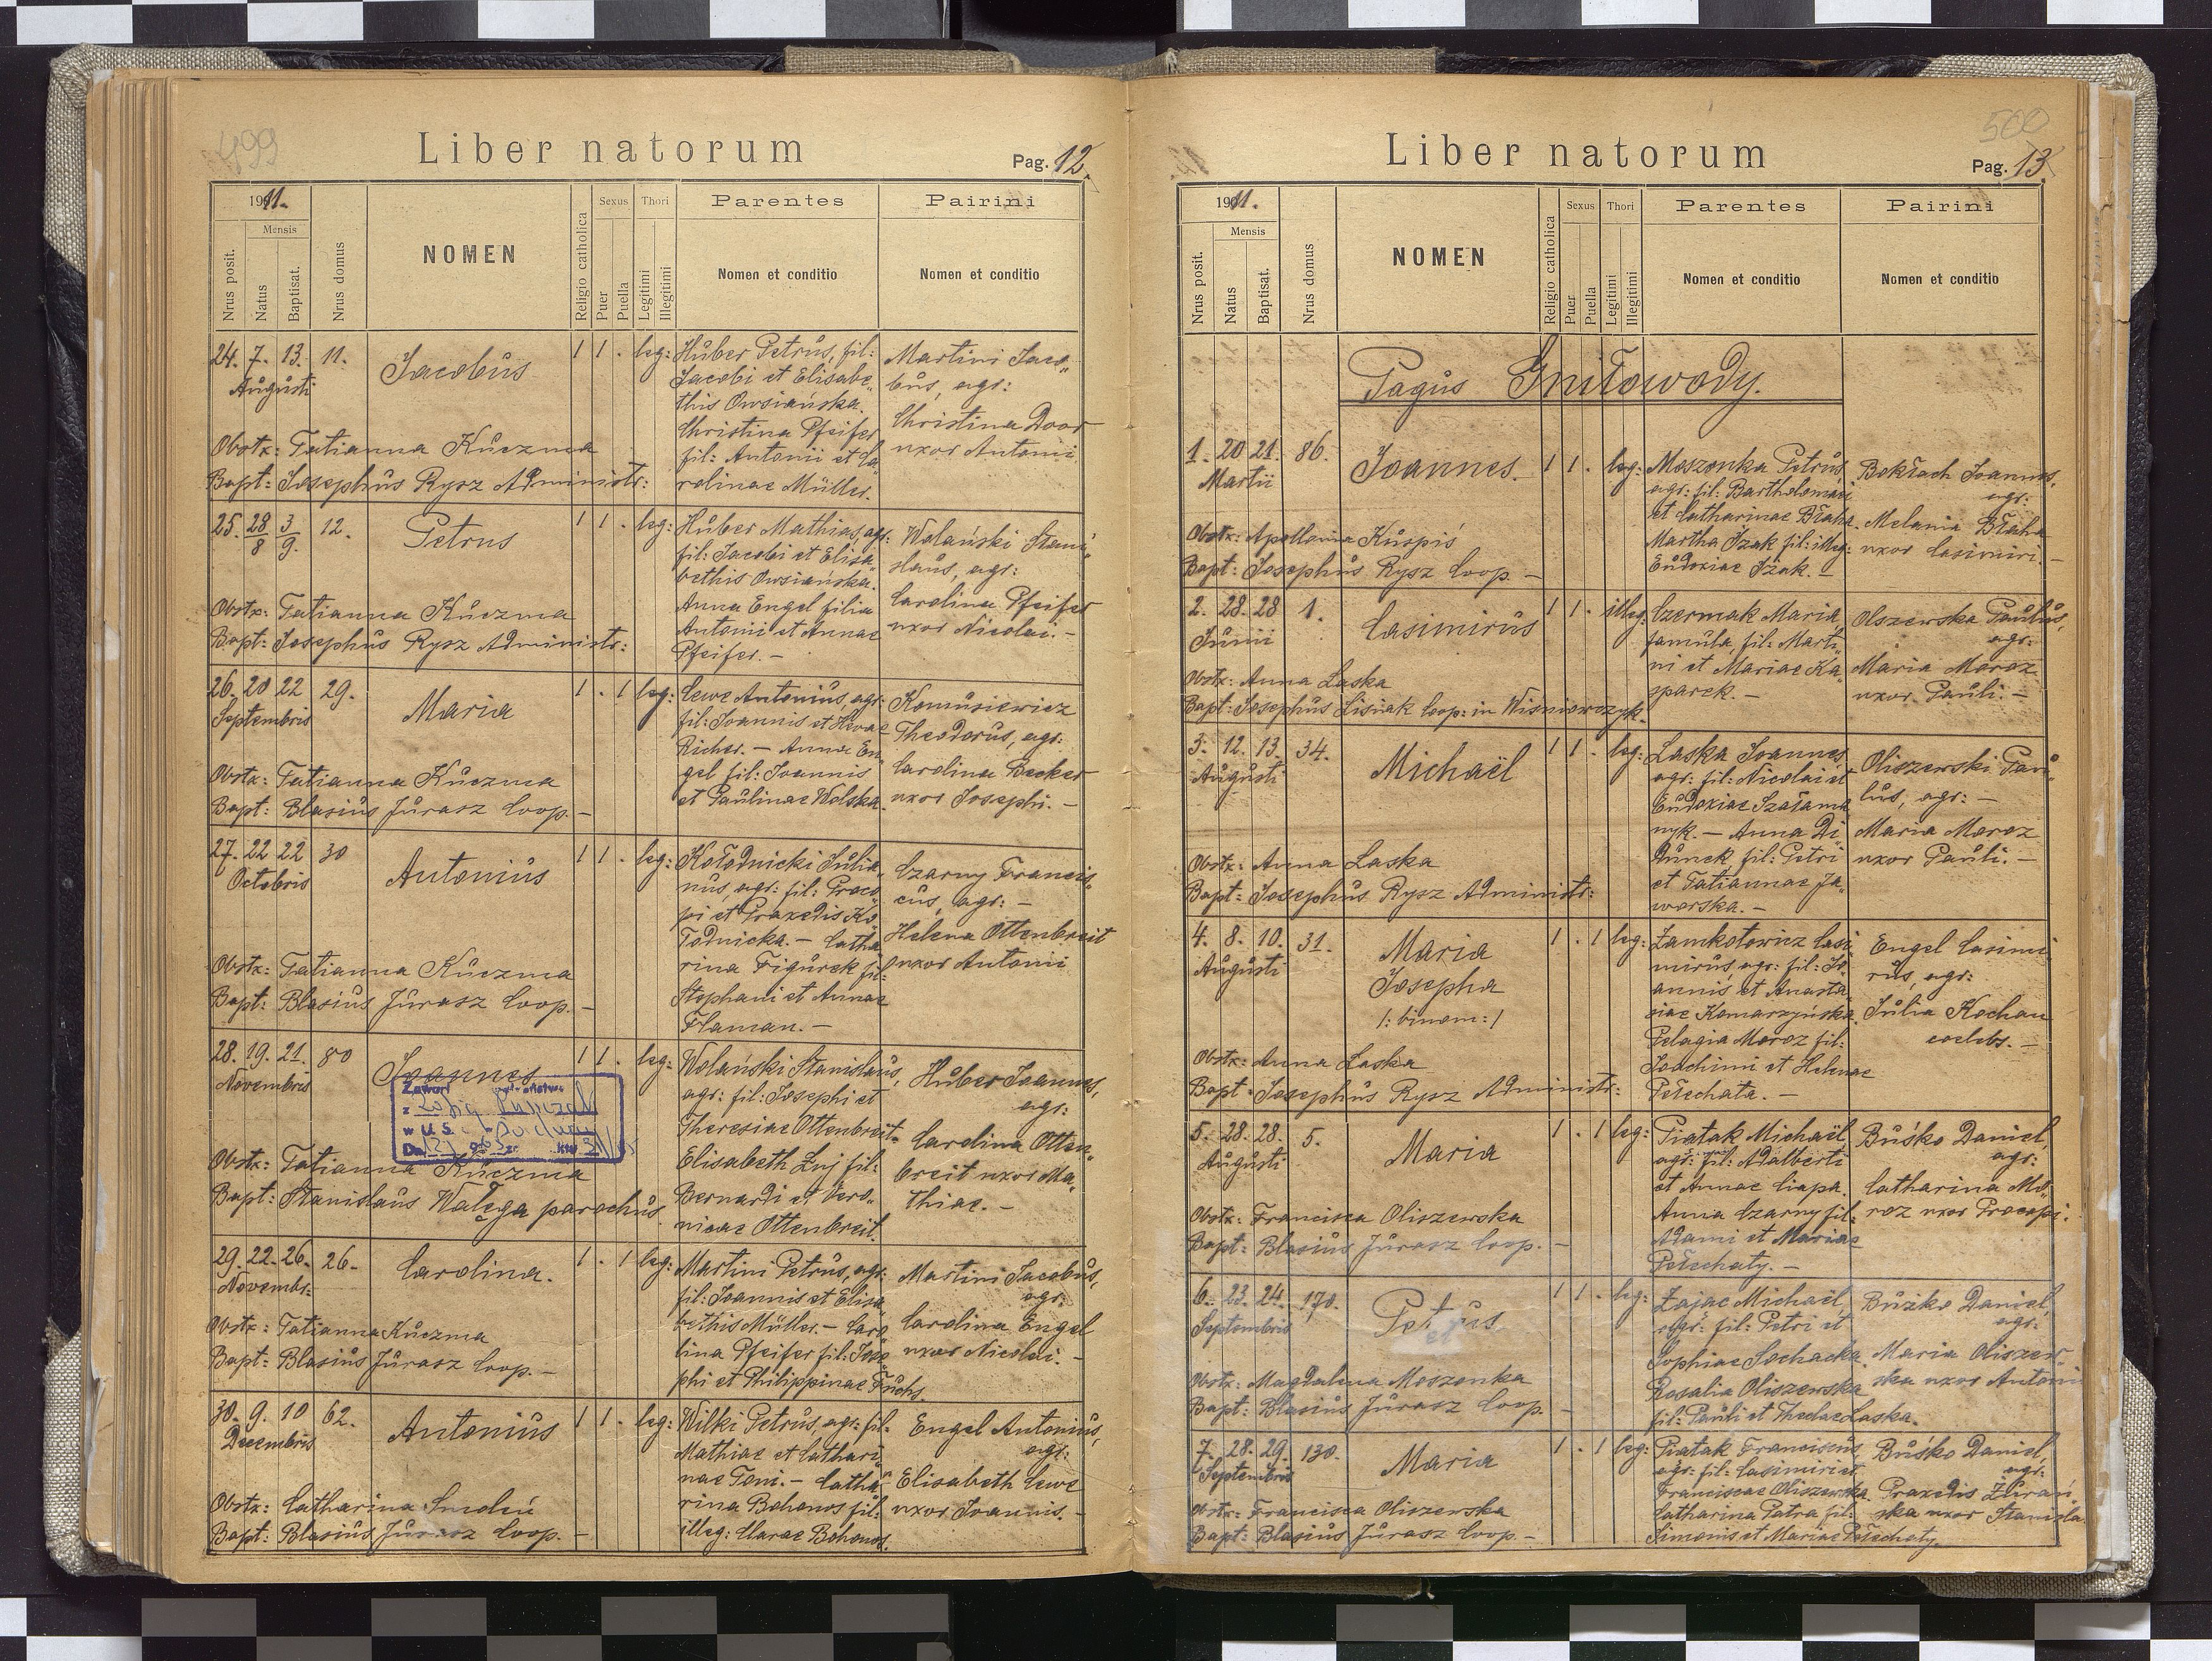 499
Liber natorum
Pag. 12.
1911.
Mensis
Nrus posit.
Natus
Baptisat.
Nrus domus
NOMEN
Religio catholica
Sexus
Puer
Puella
Thori
Legitimi
Illegitimi
Parentes
Nomen et conditio
Pairini
Nomen et conditio
24. 7. 13. 11.
Augusti
Jacobus
1 1 . leg:
Huber Petrus, fil:
Jacobi et Elisabe„
this Owsiańska.
Christina Pfeifer
fil: Antonii et Ca„
rolinae Müller.
Martini Jaco„
bus, agr:
Christina Door
uxor Antonii
Obstx: Tatianna Kuczma
Bapt: Josephus Rysz Administr:
25. 28/8 3/9. 12.
Petrus
1 1 . leg:
Huber Mathias, agr:
fil: Jacobi et Elisa„
bethis Owsiańska.
Anna Engel filia
Antonii et Annae
Pfeifer. –
Wolański Stani„
slaus, agr:
Carolina Pfeifer
uxor Nicolai. –
Obstx: Tatianna Kuczma
Bapt: Josephus Rysz Administr:
26. 20 22 29.
Septembris
Maria
1 . 1 leg:
Lewe Antonius, agr:
fil: Joannis et Evae
Richer. – Anna En„
gel fil: Joannis
et Paulinae Wolska.
Komusiewicz
Theodorus, agr:
Carolina Becker
uxor Josephi. –
Obstx: Tatianna Kuczma
Bapt: Blasius Jurasz Coop. –
27. 22 22 30
Octobris
Antonius
1 1 . leg:
Kołodnicki Julia„
nus, agr: fil: Proco„
pi et Praxedis Ko„
łodnicka. – Catha„
rina Figurek fil:
Stephani et Annae
Flaman. –
Czarny Francis„
cus, agr: –
Helena Ottenbreit
uxor Antonii
Obstx: Tatianna Kuczma
Bapt: Blasius Jurasz Coop. –
28. 19. 21. 80
Novembris
Joannes
1 1 . leg:
Wolański Stanislaus,
agr: fil: Josephi et
Theresiae Ottenbreit
Elisabeth Żuj fil:
Bernardi et Vero„
nicae Ottenbreit.
Huber Joannes,
agr:
Carolina Otten„
breit uxor Ma„
thiae. –
Zawarł
z Zofią
w U.S.
Obstx: Tatianna Kuczma
Bapt: Stanislaus Wałęga parochus.
29. 22. 26. 26.
Novembr:
Carolina.
1 . 1 leg:
Martini Petrus, agr:
fil: Joannis et Elisa„
bethis Müller. – Caro„
lina Pfeifer fil: Jose„
phi et Philippinae Fuchs.
Martini Jacobus,
agr:
Carolina Engel
uxor Nicolai. –
Obstx: Tatianna Kuczma
Bapt: Blasius Jurasz Coop. –
30. 9. 10 62.
Decembris
Antonius
1 1 . leg:
Wilki Petrus, agr: fil:
Mathiae et Cathari„
nae Toni. – Catha„
rina Bohonos fil:
illeg: Clarae Bohonos.
Engel Antonius,
agr:
Elisabeth Lewe
uxor Joannis. –
Obstx: Catharina Smoleń
Bapt: Blasius Jurasz Coop. –
500
Liber natorum
Pag. 13.
1911.
Mensis
Nrus posit.
Natus
Baptisat.
Nrus domus
NOMEN
Religio catholica
Sexus
Puer
Puella
Thori
Legitimi
Illegitimi
Parentes
Nomen et conditio
Pairini
Nomen et conditio
Pagus Gnitowody.
1. 20 21. 86.
Martii
Joannes.
1 1 . leg:
Moszonka Petrus,
agr: fil: Bartholomaei
et Catharinae Błaha.
Martha Iżak fil: illeg:
Eudoxiae Iżak. –
Bokłach Joannes,
agr:
Melania Błaha
uxor Casimiri. –
Obstx: Apollonia Kuspiś
Bapt: Josephus Rysz Coop. –
2. 28. 28 1.
Junii
Casimirus
1 1 . illeg:
Czermak Maria,
famula, fil: Marti„
ni et Mariae Ka„
sparek. –
Olszewska Paulus,
agr:
Maria Moroz
uxor Pauli. –
Obstx: Anna Laska
Bapt: Josephus Lisiak Coop: in Wiśniowczyk.
3. 12. 13. 34.
Augusti
Michaël
1 1 . leg:
Laska Joannes
agr: fil: Nicolai et
Eudoxiae Szałama„
nyk. – Anna Di„
dunek fil: Petri
et Tatiannae Ja„
worska. –
Oliszewski Pau„
lus, agr: –
Maria Moroz
uxor Pauli. –
Obstx: Anna Laska
Bapt: Josephus Rysz Administr:
4. 8. 10. 31.
Augusti
Maria
Josepha
/: binom: /
1 . 1 leg:
Zamkotowicz Casi„
mirus, agr: fil: Jo„
annis et Anasta„
siae Komarzyńska.
Pelagia Moroz fil:
Joachimi et Helenae
Petechata. –
Engel Casimi„
rus, agr:
Julia Kochan
coelebs. –
Obstx: Anna Laska
Bapt: Josephus Rysz Administr:
5. 28. 28. 5.
Augusti
Maria
1 . 1 leg:
Piatak Michaël,
agr: fil: Adalberti
et Annae Ciapa.
Anna Czarny fil:
Adami et Mariae
Petechaty. –
Buśko Daniel,
agr:
Catharina Mo„
roz uxor Procopi.
Obstx: Francisca Oliszewska
Bapt: Blasius Jurasz Coop. –
6. 23. 24. 170.
Septembris
Petrus
1 1 . leg:
Zając Michaël,
agr: fil: Petri et
Sophiae Sochacka.
Rosalia Oliszewska
fil: Pauli et Theclae Laska.
Buźko Daniel,
agr:
Maria Oliszew„
ska uxor Antonii
Obstx: Magdalena Moszonka
Bapt: Blasius Jurasz Coop. –
7. 28. 29. 130.
Septembris
Maria
1 . 1 leg:
Piatak Franciscus,
agr: fil: Casimiri et
Franciscae Oliszewska.
Catharina Patra fil:
Simonis et Mariae Petechaty.
Buśko Daniel,
agr:
Praxedis Żurań„
ska uxor Stanisla
Obstx: Francisca Oliszewska
Bapt: Blasius Jurasz Coop. –